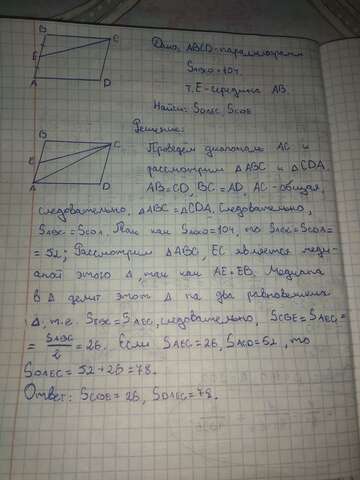 B C
E
A D
Дано: ABCD - параллелограмм
SABCD = 104
т. E - середина AB.
Найти: SDAEC, SCBE
Решение:
B C
E
A D
Проведем диагональ AC и
рассмотрим △ABC и △CDA.
AB = CD, BC = AD, AC - общая,
следовательно, △ABC = △CDA. Следовательно,
SABC = SCDA. Так как SABCD = 104, то SABC = SCDA =
= 52; Рассмотрим △ABC, EC является меди-
аной этого △, так как AE = EB. Медиана
в △ делит этот △ на два равновеликих
△, т.е. SCBE = SAEC, следовательно, SCBE = SAEC =
= SABC/2 = 26. Если SAEC = 26, SACD = 52, то
SDAEC = 52 + 26 = 78.
Ответ: SCBE = 26, SDAEC = 78.